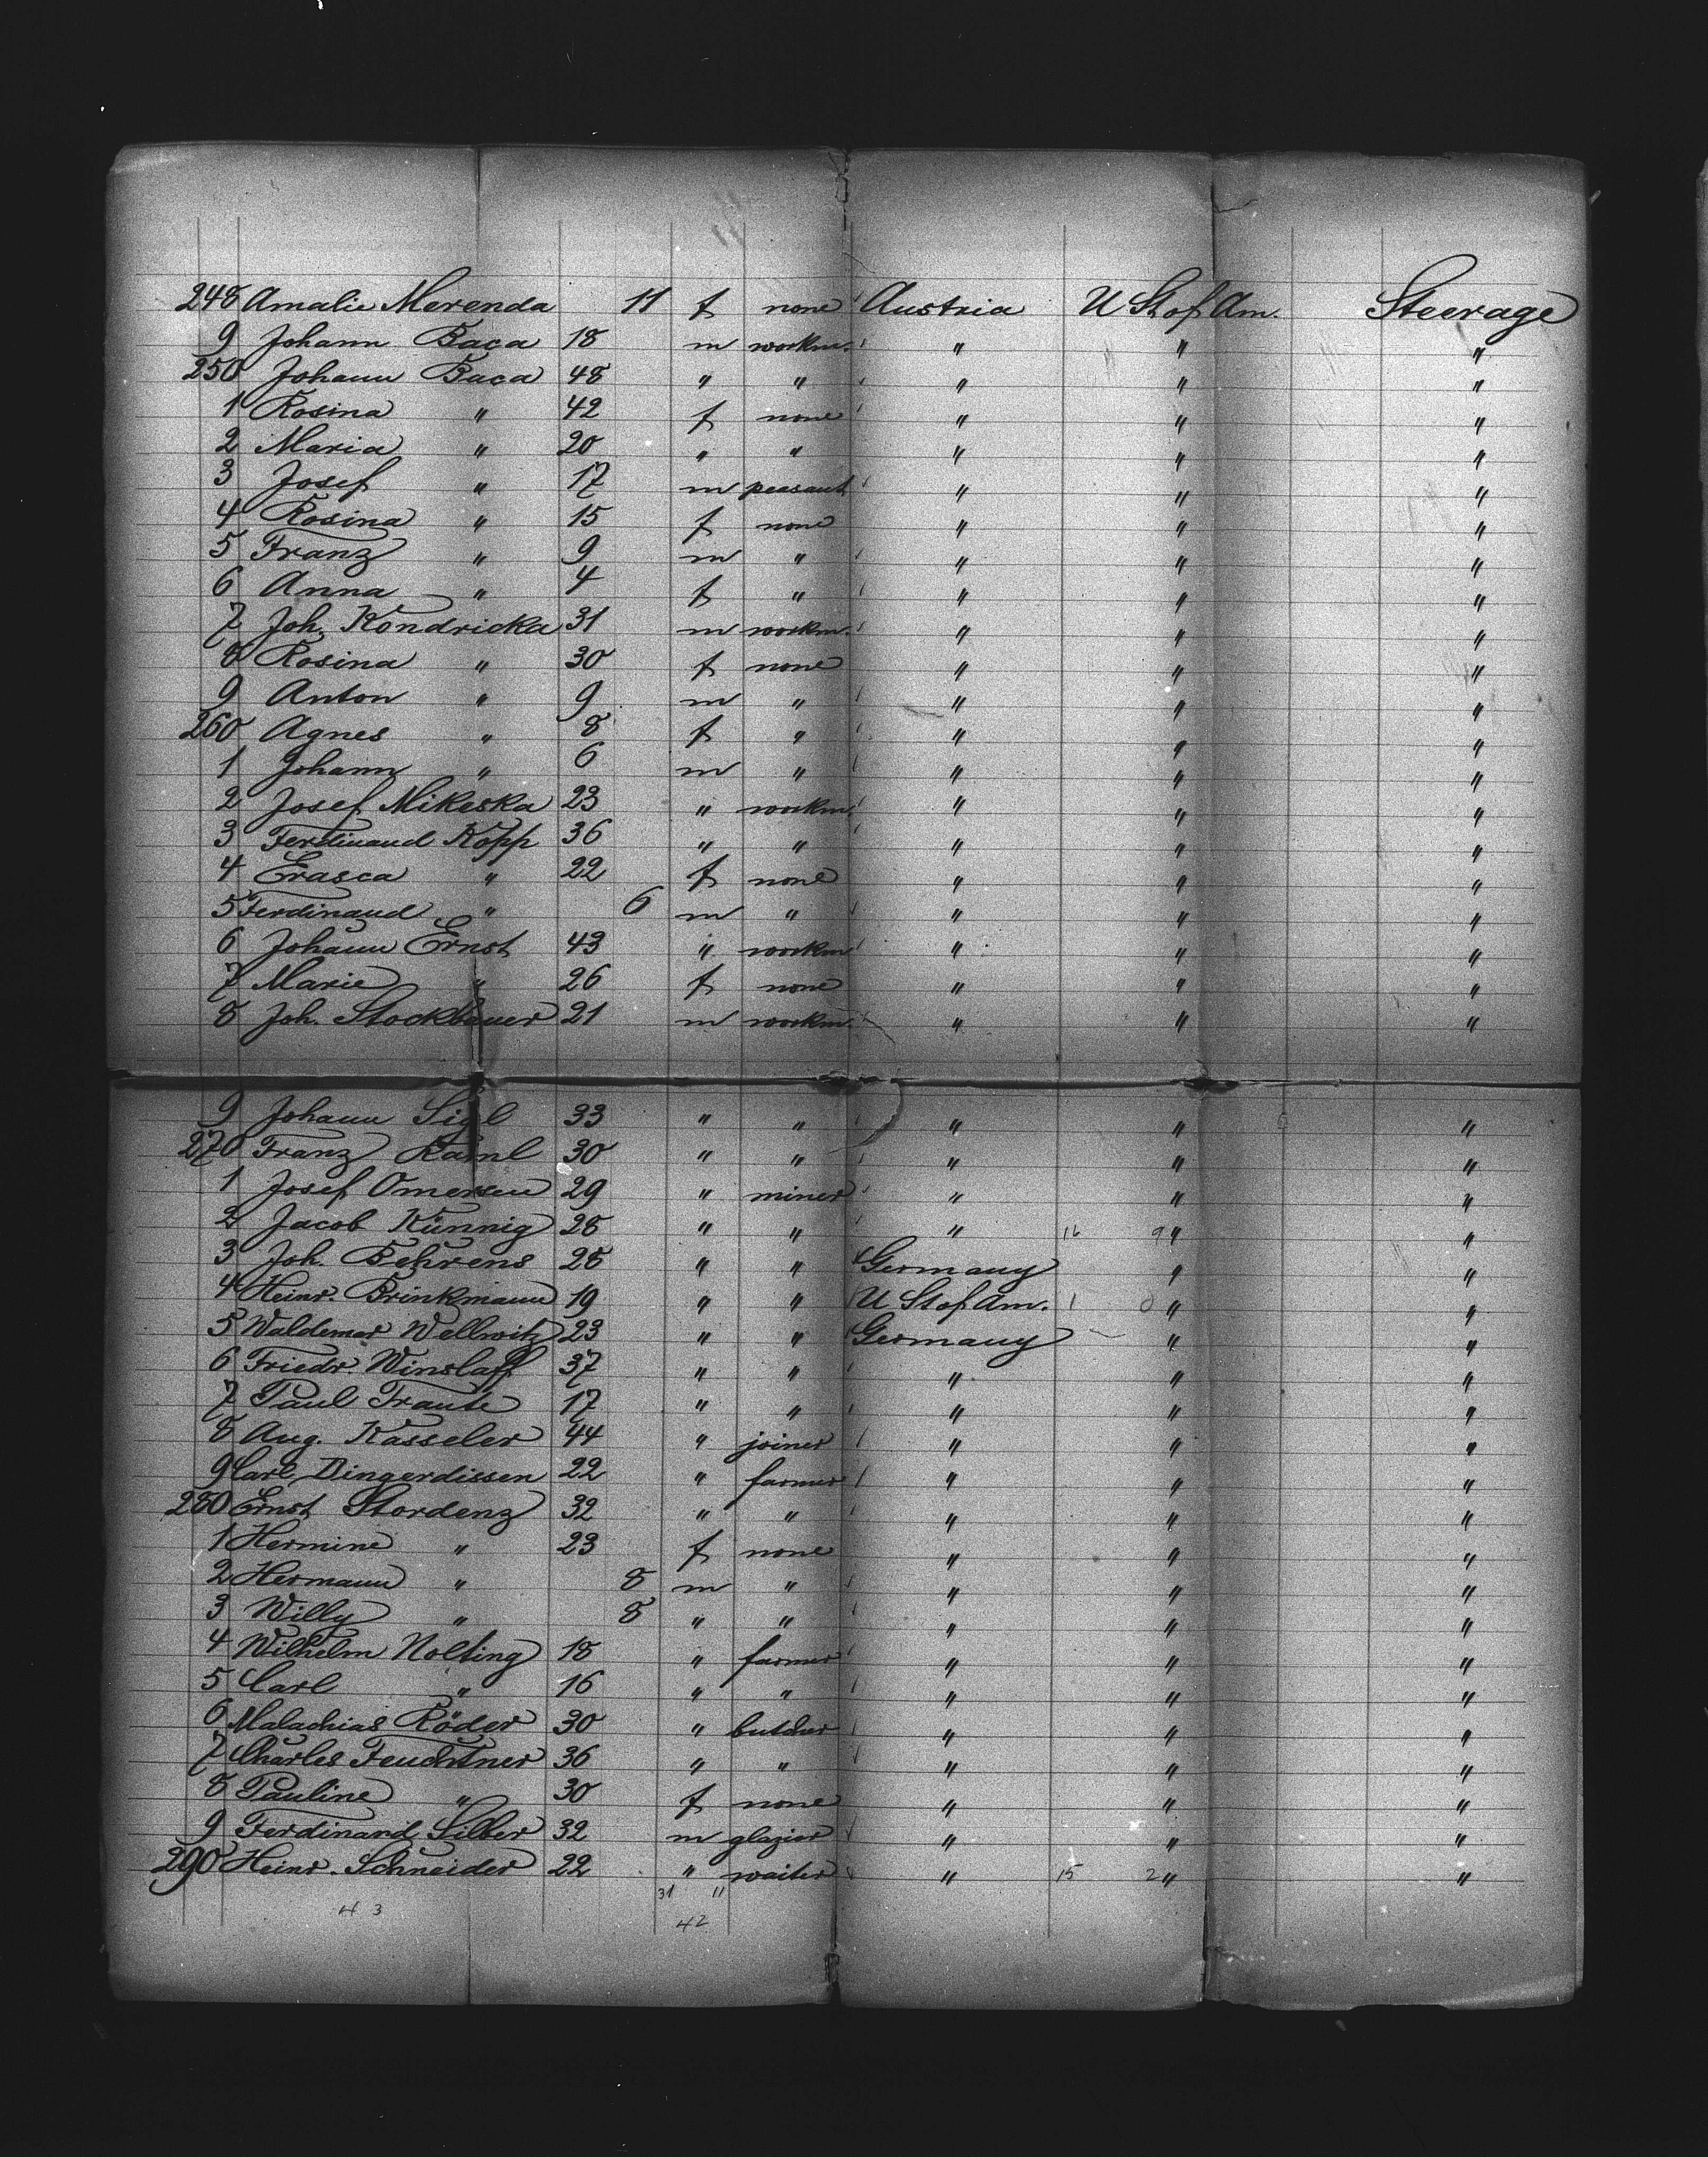 248 Amalie Merenda 11 f none Austria U St of Am. Steerage
9 Johann Baca 18 m workm. " " "
250 Johann Baca 48 " " " " "
1 Rosina " 42 f none " " "
2 Maria " 20 " " " " "
3 Josef " 17 m peasant " " "
4 Rosina " 15 f none " " "
5 Franz " 9 m " " " "
6 Anna " 4 f " " " "
7 Joh. Kondricka 31 m workm. " " "
8 Rosina " 30 f none " " "
9 Anton " 9 m " " " "
260 Agnes " 8 f " " " "
1 Johann " 6 m " " " "
2 Josef Mikeska 23 " workm. " " "
3 Ferdinand Kopp 36 " " " " "
4 Erasca " 22 f none " " "
5 Ferdinand " 6 m " " " "
6 Johann Ernst 43 " workm " " "
7 Marie " 26 f none " " "
8 Joh. Stockbauer 21 m workm. " " "
9 Johann Sigl 33 " " " " "
270 Franz 30 " " " " "
1 Josef Omersen 29 " miner " " "
2 Jacob Künnig 28 " " " 16 9 " "
3 Joh. Behrens 28 " " Germany " "
4 Heinr. Brinkmann 19 " " U St of Am. 1 0 " "
5 Waldemar Wellwitz 23 " " Germany " "
6 Friedr. Winslaff 37 " " " " "
7 Paul Traute 17 " " " " "
8 Aug. Kasseler 44 " joiner " " "
9 Carl Dingerdissen 22 " farmer " " "
280 Ernst Stordenz 32 " " " " "
1 Hermine " 23 f none " " "
2 Hermann " 8 m " " " "
3 Willy " 8 " " " " "
4 Wilhelm Nolting 18 " farmer " " "
5 Carl " 16 " " " " "
6 Malachias Röder 30 " butcher " " "
7 Charles Feuchtner 36 " " " " "
8 Pauline " 30 f none " " "
9 Ferdinand Silber 32 m glazier " " "
290 Heinr. Schneider 22 " waiter " 15 2 " "
31 11
43
42